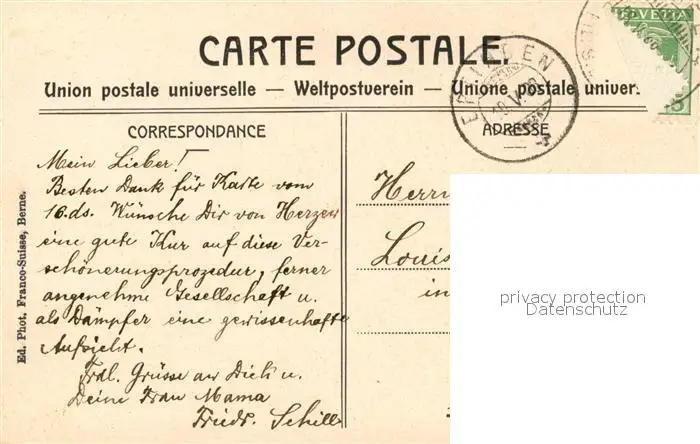 HELVETIA
CARTE POSTALE.
Union postale universelle — Weltpostverein — Unione postale univer.
CORRESPONDANCE
ADRESSE
Mein Lieber!
Besten Dank für Karte vom
16. ds. Wünsche Dir von Herzen
eine gute Kur auf diese Ver-
schönerungsprozedur, ferner
angenehme Gesellschaft u.
als Dämpfer eine gewissenhafte
Aufsicht.
Frdl. Grüsse an Dich u.
Deine Frau Mama
Friedr. Schill
Herrn
Louis
in
privacy protection
Datenschutz
Ed. Phot. Franco-Suisse, Berne.